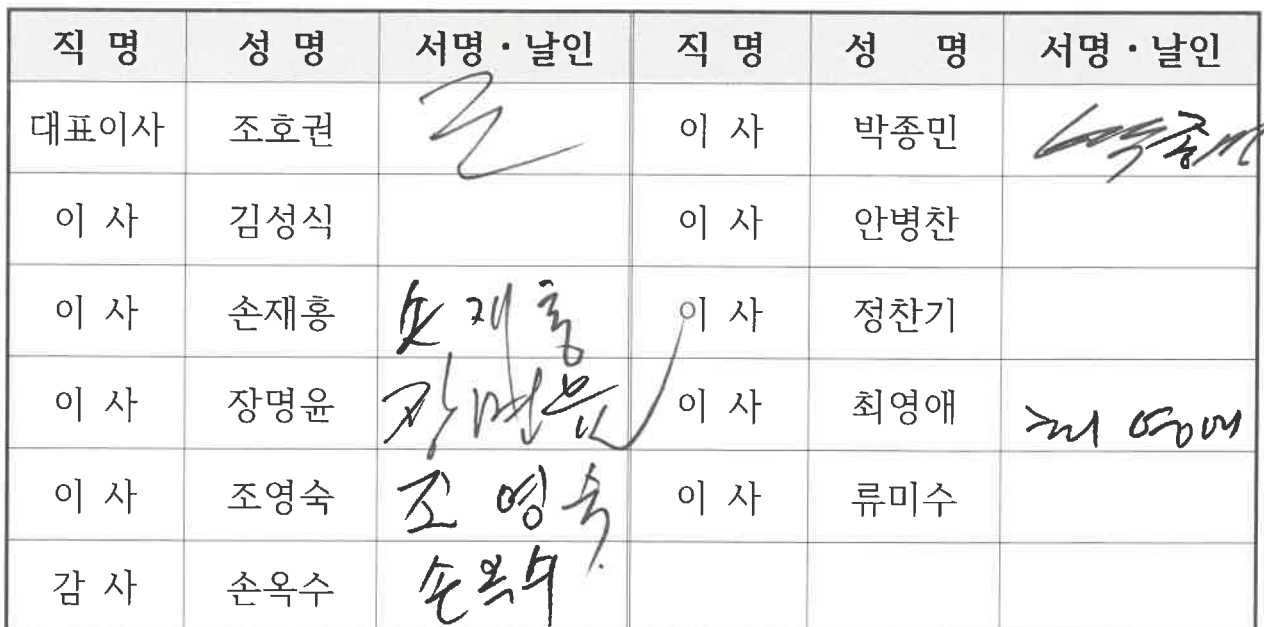 직 명 성 명 서명·날인 직 명 성 명 서명·날인
대표이사 조호권 이 사 박종민 박종민
이 사 김성식 이 사 안병찬
이 사 손재홍 손재홍 이 사 정찬기
이 사 장명윤 장명윤 이 사 최영애 최영애
이 사 조영숙 조 영숙 이 사 류미수
감 사 손옥수 손옥수